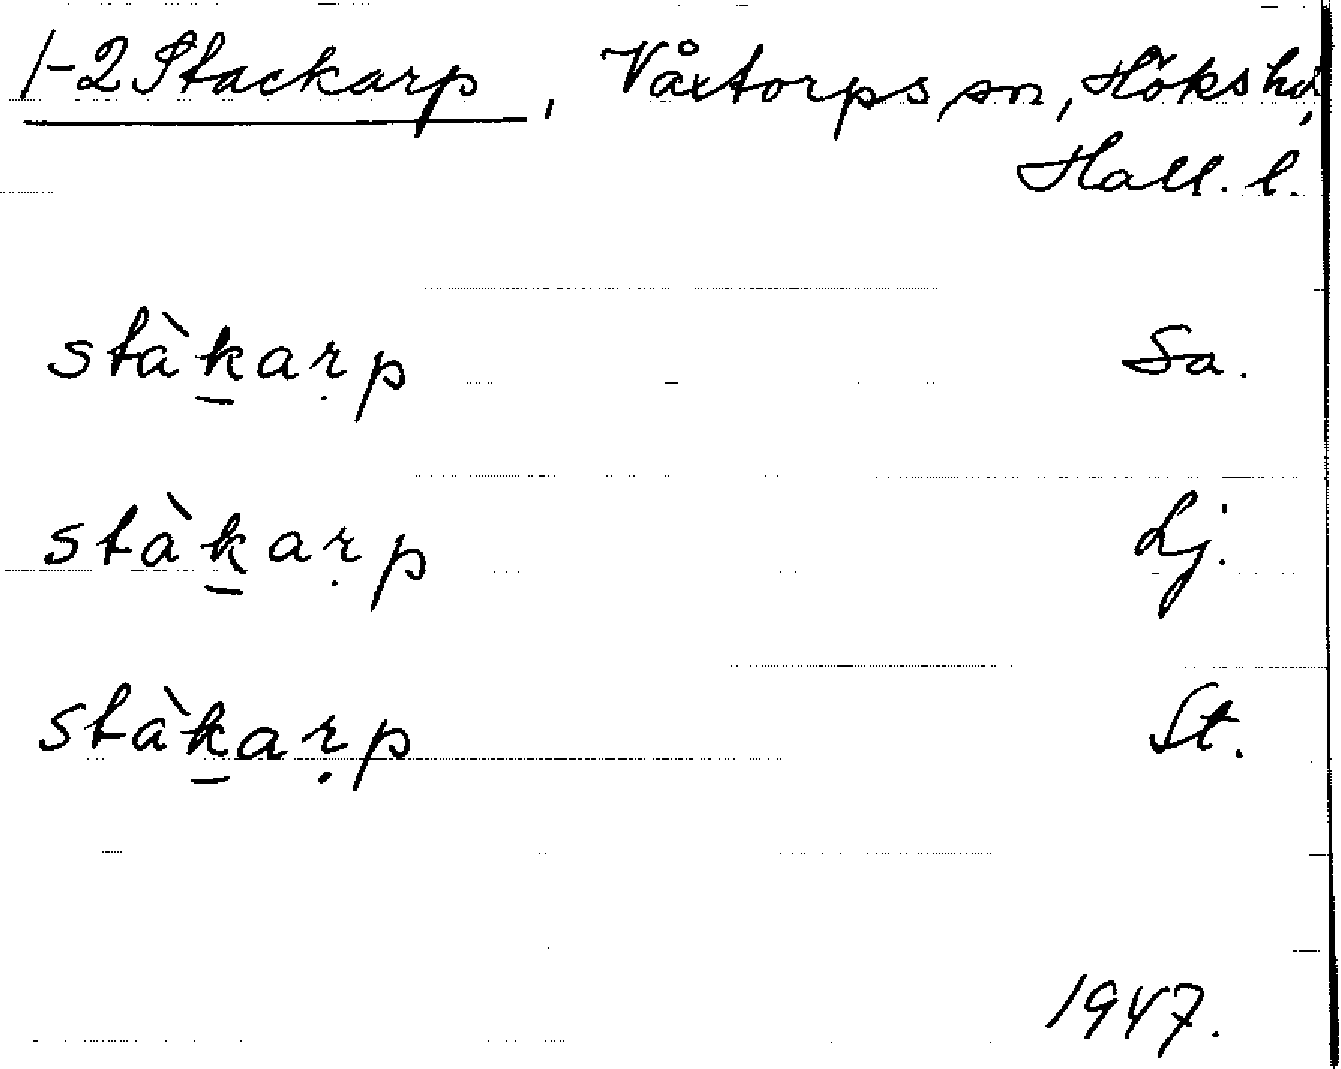 1-2 Stackarp, Våxtorps sn, Höks hd,
Hall. l.
stàk̲aṛp Sa.
stàk̲aṛp Lj.
stàk̲aṛp St.
1947.